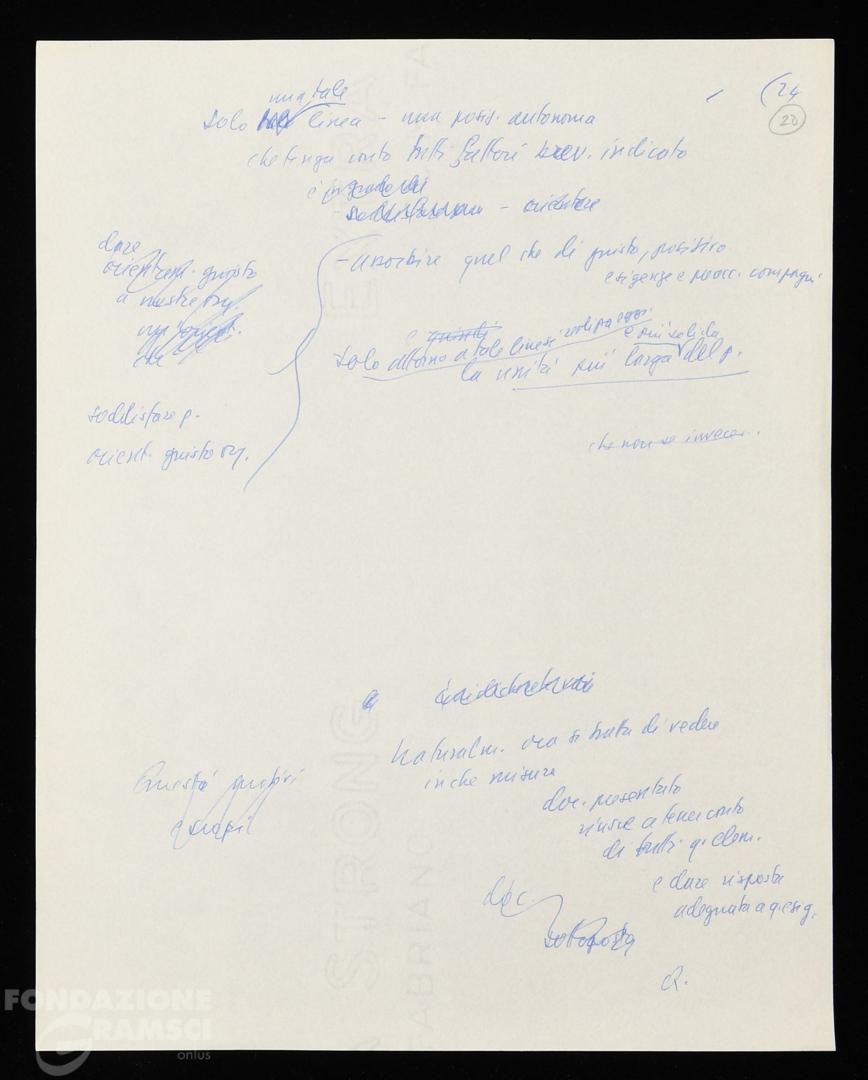 (24
20
una tale
solo tale linea - una posiz. autonoma
che tenga conto tutti fattori prev. indicato
è in grado di
soddisfare - orientare
dare
orientam. giusto
a nostre org.
che
- assorbire quel che di giusto, positivo
esigenze e preocc. compagni
e quindi
e più solida
solo attorno a tale linea si realizza oggi
la unità più larga del p.
soddisfare p.
orient. giusto org.
che non se invece
Naturalm. ora si tratta di vedere
in che misura
Questi motivi
e scopi
doc. presentato
riesce a tener conto
di tutti q. elem.
e dare risposta
adeguata a q. esig.
doc
sottoposta
R.
STRONG
FABRIANO
EXTRA
FONDAZIONE
GRAMSCI
onlus